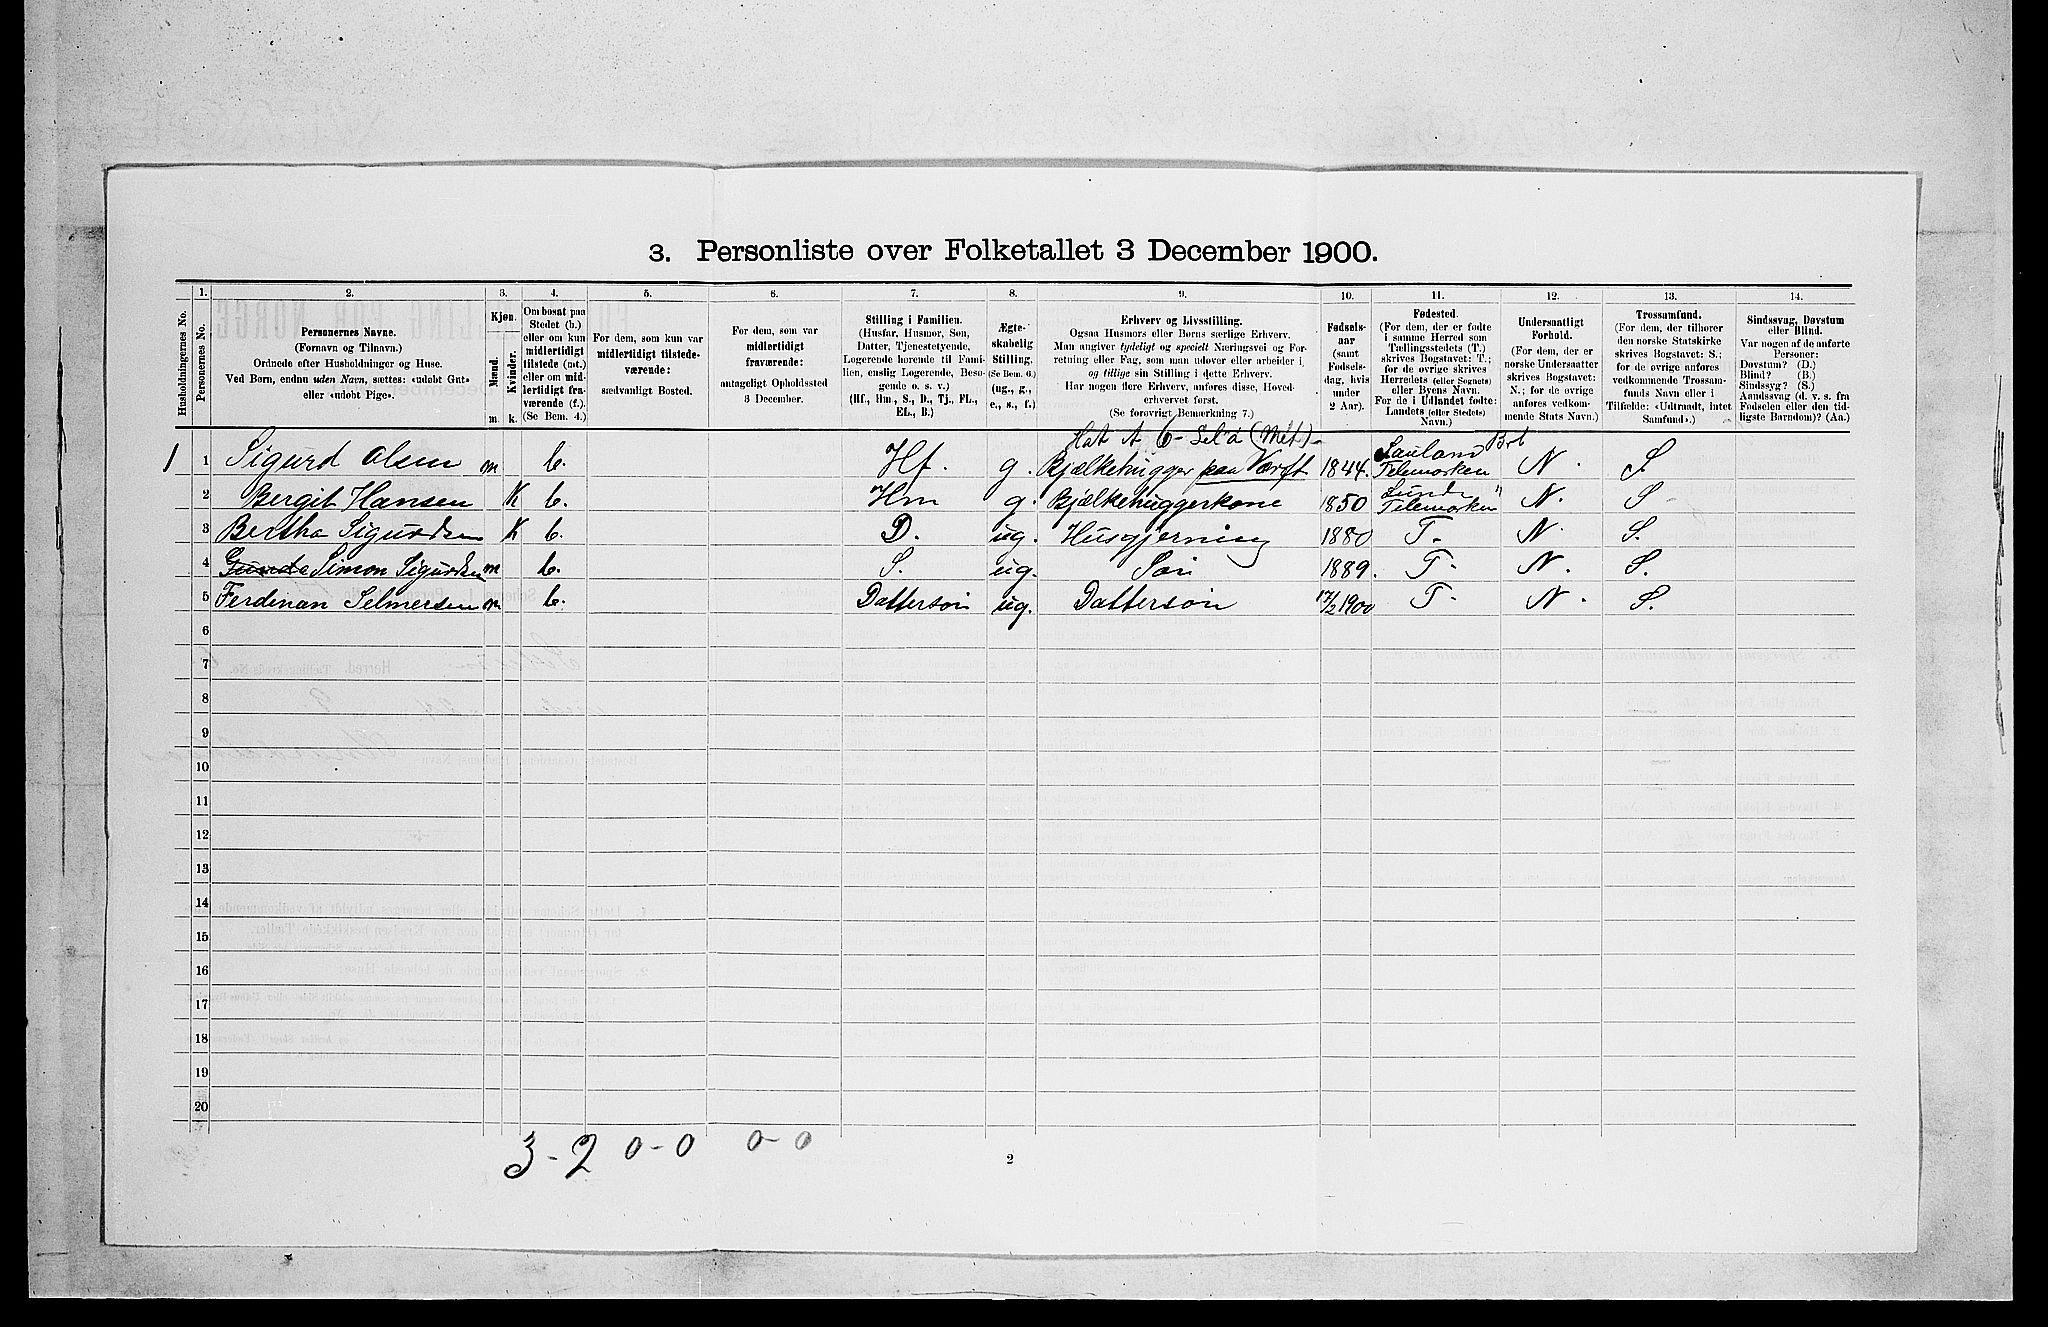 3. Personliste over Folketallet 3 December 1900.
1. 2. 3. 4. 5. 6. 7. 8. 9. 10. 11. 12. 13. 14.
Husholdningernes No.
Personernes No.
Personernes Navne.
(Fornavn og Tilnavn.)
Ordnede efter Husholdninger og Huse.
Ved Børn, endnu uden Navn, sættes: «udøbt Gut»
eller «udøbt Pige».
Kjøn.
Mænd. Kvinder.
m. k.
Om bosat paa
Stedet (b.)
eller om kun
midlertidigt
tilstede (mt.)
eller om mid-
lertidigt fra-
værende (f.).
(Se Bem. 4.)
For dem, som kun var
midlertidigt tilstede-
værende:
sædvanligt Bosted.
For dem, som var
midlertidigt
fraværende:
antageligt Opholdssted
3 December.
Stilling i Familien.
(Husfar, Husmor, Søn,
Datter, Tjenestetyende,
Logerende hørende til Fami-
lien, enslig Logerende, Besø-
gende o. s. v.)
(Hf., Hm., S., D., Tj., FL.,
EL., B.)
Ægte-
skabelig
Stilling.
(Se Bem. 6.)
(ug., g.,
e., s., f.)
Erhverv og Livsstilling.
Ogsaa Husmors eller Børns særlige Erhverv.
Man angiver tydeligt og specielt Næringsvei og For-
retning eller Fag, som man udøver eller arbeider i,
og tillige sin Stilling i dette Erhverv.
Har nogen flere Erhverv, anføres disse, Hoved-
erhvervet først.
(Se forøvrigt Bemærkning 7.)
Fødsels-
aar
(samt
Fødsels-
dag, hvis
under
2 Aar).
Fødested.
(For dem, der er fødte
i samme Herred som
Tællingsstedets (T.)
skrives Bogstavet: T.;
for de øvrige skrives
Herredets (eller Sognets)
eller Byens Navn.
For de i Udlandet fødte:
Landets (eller Stedets)
Navn.)
Undersaatligt
Forhold.
(For dem, der er
norske Undersaatter
skrives Bogstavet:
N.; for de øvrige
anføres vedkom-
mende Stats Navn.)
Trossamfund.
(For dem, der tilhører
den norske Statskirke
skrives Bogstavet: S.;
for de øvrige anføres
vedkommende Trossam-
funds Navn eller i
Tilfælde: «Udtraadt, intet
Samfund».)
Sindssvag, Døvstum
eller Blind.
Var nogen af de anførte
Personer:
Døvstum? (D.)
Blind? (B.)
Sindssyg? (S.)
Aandssvag (d. v. s. fra
Fødselen eller den tid-
ligste Barndom)? (Aa.)
1 1 Sigurd Olsen m b. Hf. g. Bjælkehugger paa Værft 1844. Sauland Telemarken N. S.
2 Bergit Hansen K b. Hm g. Bjælkehuggerkone 1850 Lunde Telemarken N. S
3 Bertha Sigurdsen K b. D. ug. Husgjerning 1880 T. N. S.
4 Simon Sigurdsen m b. S. ug. Søn 1889. T. N. S.
5 Ferdinan Selmersen m b. Dattersøn ug. Dattersøn 17/2 1900 T. N. S.
6
7
8
9
10
11
12
13
14
15
16
17
18
19
20
3-2 0-0 0-0
2